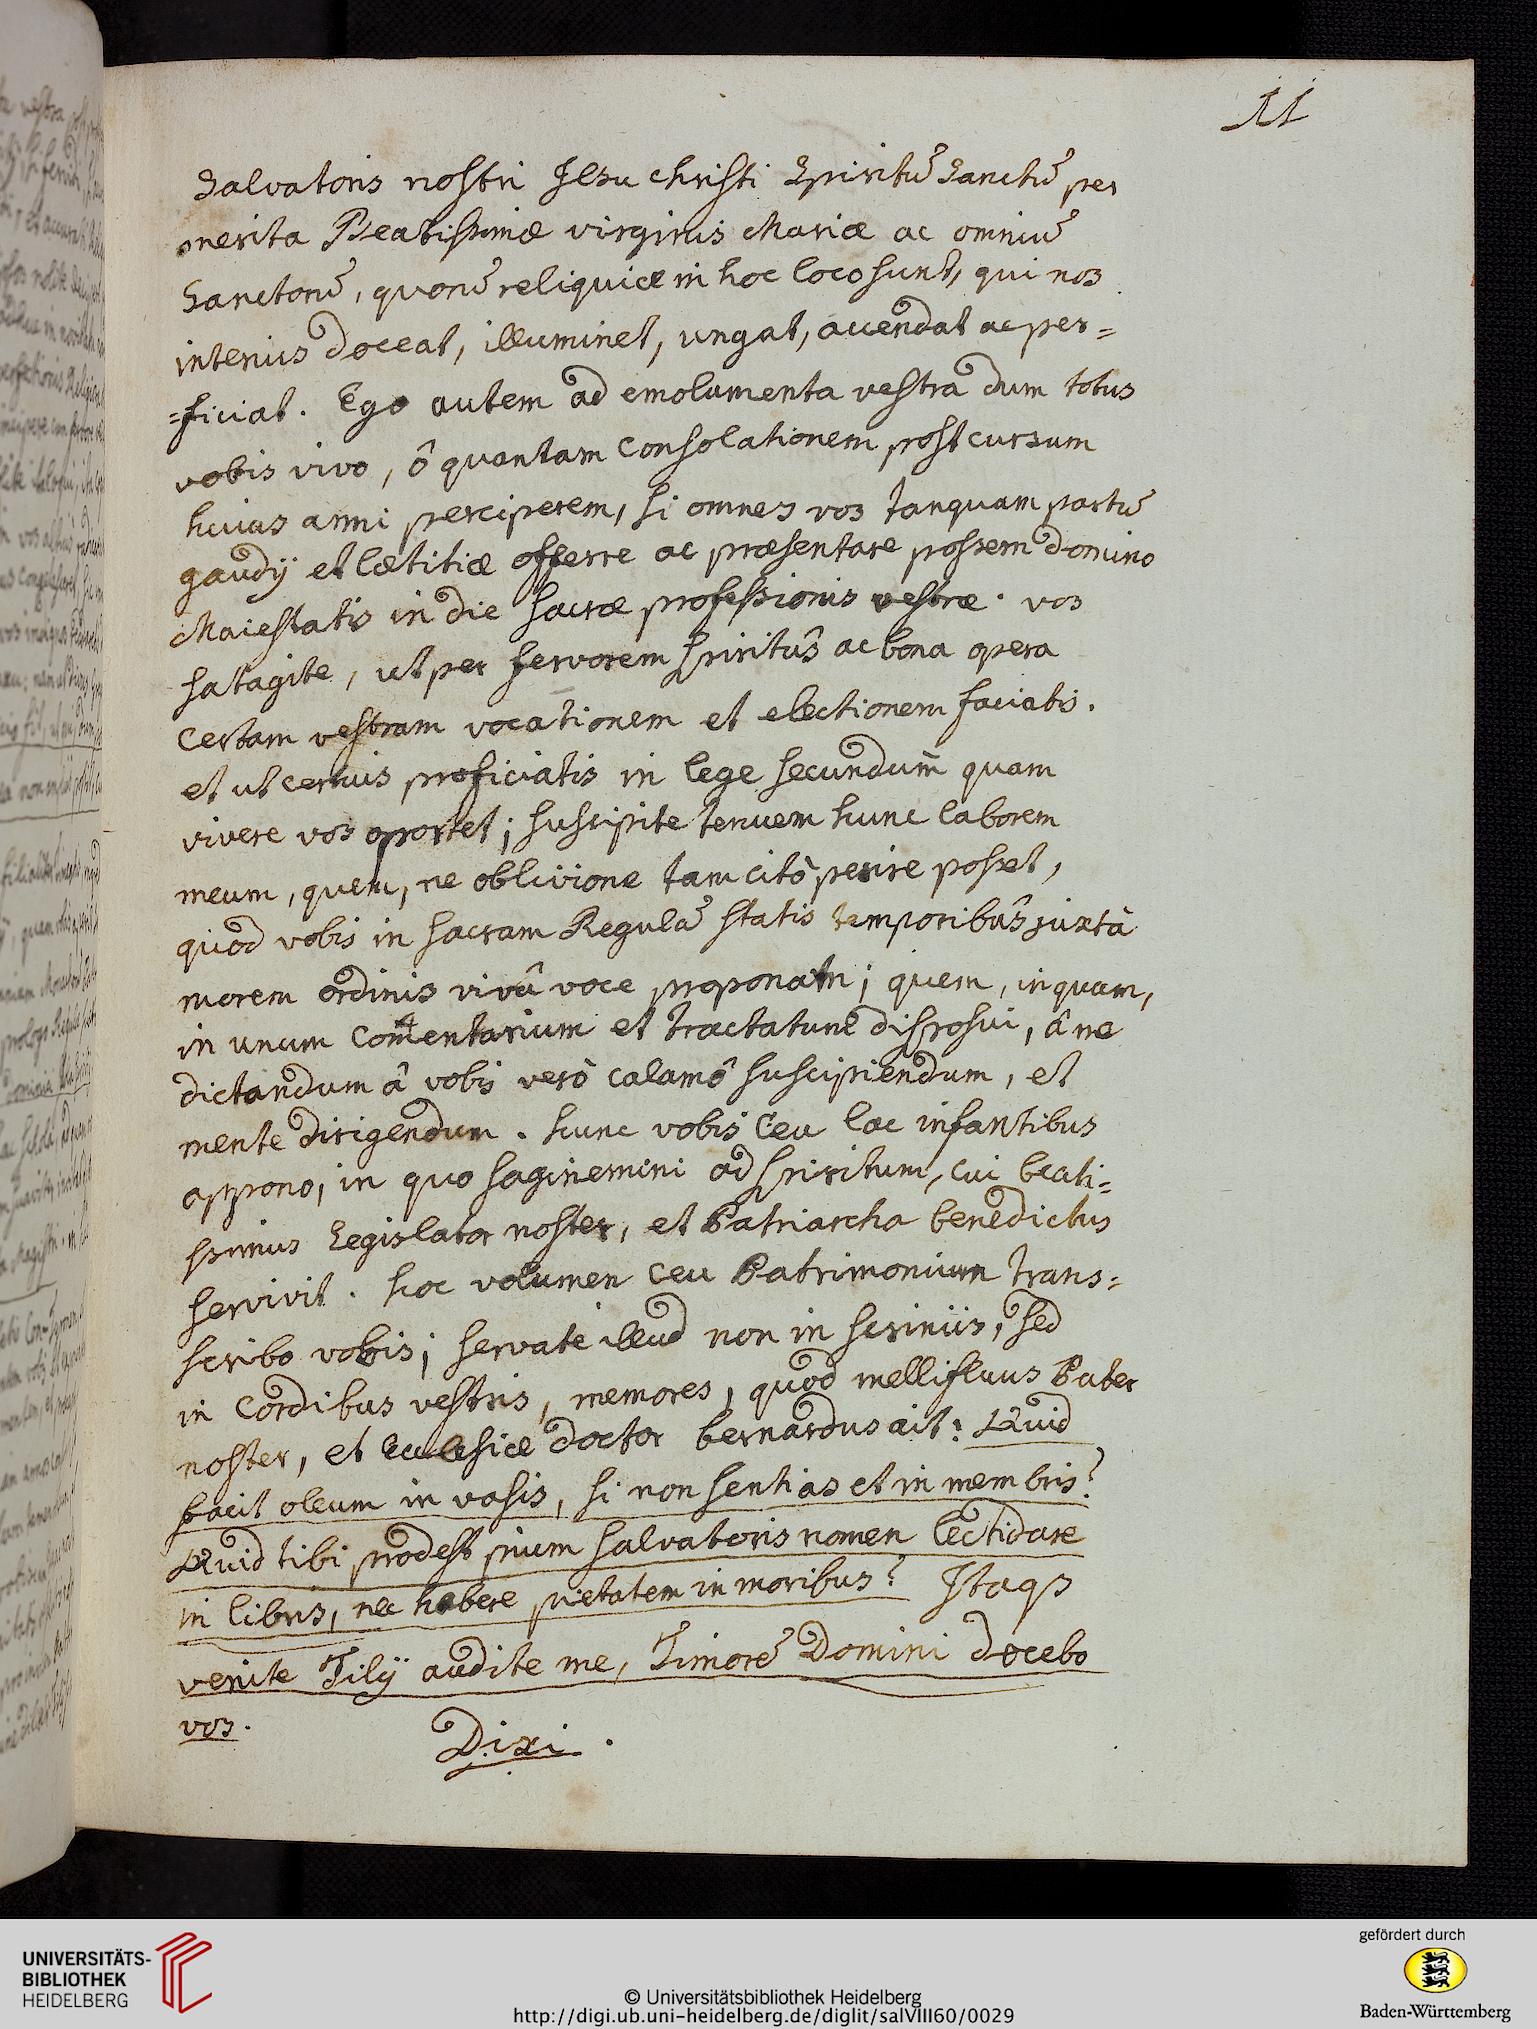 11
Salvatoris nostri Jesu Christi Spiritũ Sanctũ per
merita Beatissimæ virginis Mariæ ac omniũ
Sanctorũ, quorũ reliquiæ in hoc loco sunt, qui nos
interius doceat, illuminet, ungat, accendat ac per-
=ficiat. Ego autem ad emolumenta vestra dum totus
vobis vivo, ô quantam consolationem post cursum
huius anni perciperem, si omnes vos tanquam partũ
gaudij et lætitiæ offerre ac præsentare possem domino
Maiestatis in die sacræ professionis vestræ. vos
satagite, ut per fervorem spiritûs ac bona opera
certam vestram vocationem et electionem faciatis.
et ut certius proficiatis in lege secundùm quam
vivere vos oportet; suscipite tenuem hunc laborem
meum, quem, ne oblivione tam citò perire posset,
quod vobis in sacram Regulã statis temporibûs juxtà
morem ordinis vivâ voce proponam; quem, inquam,
in unum comentarium et tractatum disposui, â me
dictandum â vobis verò calamô suscipiendum, et
mente dirigendum. hunc vobis ceu lac infantibus
appono, in quo saginemini ad spiritum, cui beati=
ssimus Legislator noster, et Patriarcha benedictus
servivit. hoc volumen ceu Patrimonium trans=
scribo vobis; servate illud non in scriniis, sed
in cordibus vestris, memores, quod mellifluus Pater
noster, et Ecclesiæ doctor bernardus ait: Quid
facit oleum in vasis, si non sentias et in membris?
Quid tibi prodest pium salvatoris nomen lectidare
in libris, nec habere pietatem in moribus? Itaqȝ
venite Filij audite me, Timorẽ Domini docebo
vos.
Dixi.
UNIVERSITÄTS-
BIBLIOTHEK
HEIDELBERG
© Universitätsbibliothek Heidelberg
http://digi.ub.uni-heidelberg.de/diglit/salVIII60/0029
gefördert durch
Baden-Württemberg